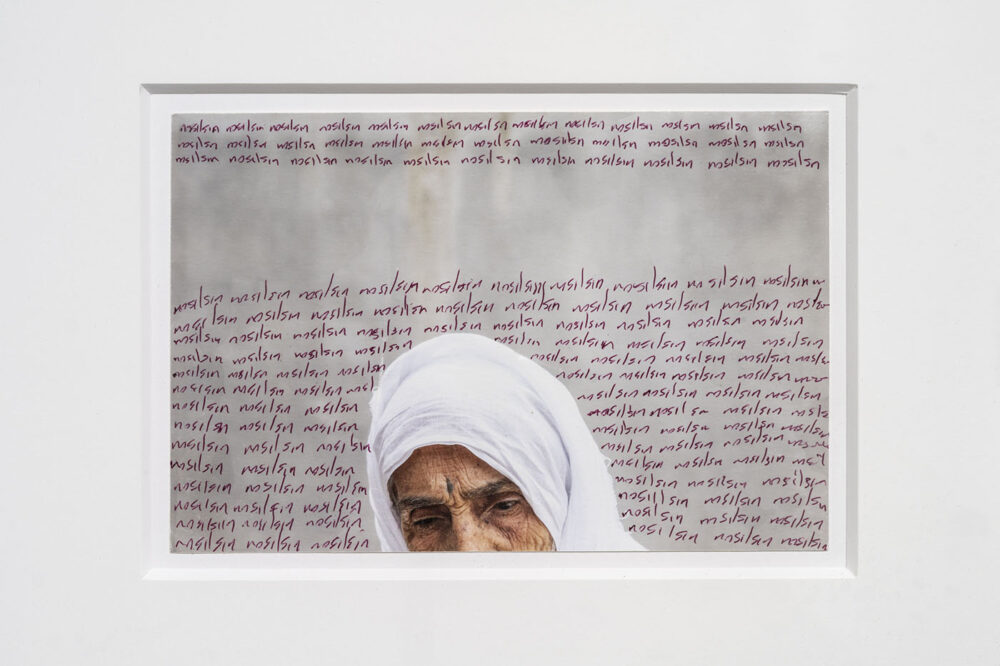 nasılsın nasılsın nasılsın nasılsın nasılsın nasılsın nasılsın nasılsın nasılsın nasılsın nasılsın nasılsın nasılsın
nasılsın nasılsın nasılsın nasılsın nasılsın nasılsın nasılsın nasılsın nasılsın nasılsın nasılsın nasılsın
nasılsın nasılsın nasılsın nasılsın nasılsın nasılsın nasılsın nasılsın nasılsın nasılsın nasılsın
nasılsın nasılsın nasılsın nasılsın nasılsın nasılsın nasılsın nasılsın nasılsın nasılsın
nasılsın nasılsın nasılsın nasılsın nasılsın nasılsın nasılsın nasılsın nasılsın nasılsın
nasılsın nasılsın nasılsın nasılsın nasılsın nasılsın nasılsın nasılsın nasılsın nasılsın
nasılsın nasılsın nasılsın nasılsın nasılsın nasılsın nasılsın nasılsın
nasılsın nasılsın nasılsın nasılsın nasılsın nasılsın nasılsın nasılsın
nasılsın nasılsın nasılsın nasılsın nasılsın nasılsın nasılsın
nasılsın nasılsın nasılsın nasılsın nasılsın nasılsın nasılsın
nasılsın nasılsın nasılsın nasılsın nasılsın nasılsın nasılsın
nasılsın nasılsın nasılsın nasılsın nasılsın nasılsın nasılsın
nasılsın nasılsın nasılsın nasılsın nasılsın nasılsın
nasılsın nasılsın nasılsın nasılsın nasılsın nasılsın
nasılsın nasılsın nasılsın nasılsın nasılsın nasılsın
nasılsın nasılsın nasılsın nasılsın nasılsın nasılsın
nasılsın nasılsın nasılsın nasılsın nasılsın nasılsın
nasılsın nasılsın nasılsın nasılsın nasılsın nasılsın